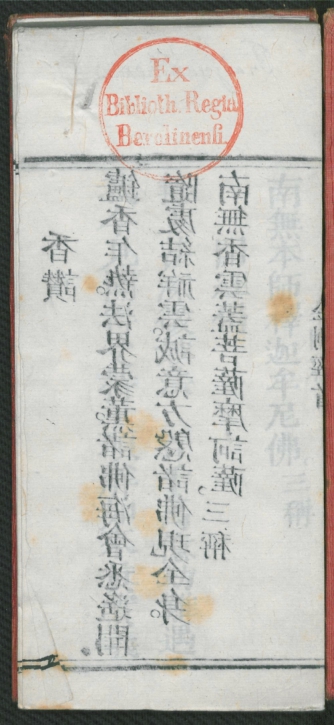 Ex
Biblioth. Regia
Berolinensi.
香讚
鑪香乍熱。法界蒙薰。諸佛海會悉遙聞。
隨處結祥雲。誠意方殷。諸佛現全身。
南無香雲蓋菩薩摩訶薩。三稱
南無本師釋迦牟尼佛三稱